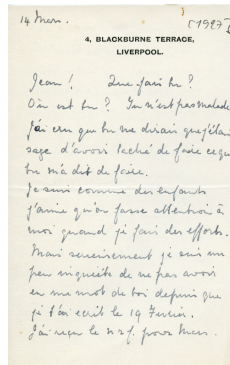 14 Mars.
(1927)
4, BLACKBURNE TERRACE,
LIVERPOOL.
Jean! Que fais tu?
Où est tu? Tu n'est pas malade
J'ai cru que tu me dirais que j'étais
sage d'avoir taché de faire ce que
tu m'a dit de faire.
Je suis comme des enfants
j'aime qu'on fasse attention à
moi quand je fais des efforts.
Mais serieusement je suis un
peu inquiète de ne pas avoir
eu un mot de toi depuis que
je t'ai ecrit le 19 Fevrier.
J'ai reçu le n.r.f. pour Mars.